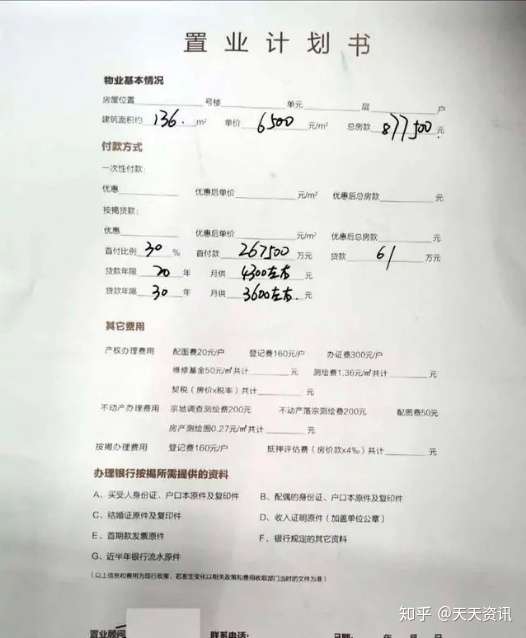 置业计划书
物业基本情况
房屋位置 号楼 单元 层 户
建筑面积约 136. m² 单价 6500 元/m² 总房款 877500 元
付款方式
一次性付款:
优惠 优惠后单价 元/m² 优惠后总房款 元
按揭贷款:
优惠 优惠后单价 元/m² 优惠后总房款 元
首付比例 30 % 首付款 267500 万元 贷款 61 万元
贷款年限 20 年 月供 4300左右 元
贷款年限 30 年 月供 3600左右. 元
其它费用
产权办理费用 配图费20元/户 登记费160元/户 办证费300元/户
维修基金50元/㎡共计 元 测绘费1.36元/㎡共计 元
契税（房价x税率）共计 元
不动产办理费用 宗地调查测绘费200元 不动产落宗测绘费200元 配图费50元
房产测绘图0.27元/㎡共计 元
按揭办理费用 登记费160元/户 抵押评估费（房价款x4‰）共计 元
办理银行按揭所需提供的资料
A、买受人身份证、户口本原件及复印件 B、配偶的身份证、户口本原件及复印件
C、结婚证原件及复印件 D、收入证明原件（加盖单位公章）
E、首期款发票原件 F、银行规定的其它资料
G、近半年银行流水原件
（以上信息和费用为现行政策，若发生变化以相关政策和费用收取部门当时的文件为准）
置业顾问 联系电话: 日期: 年 月 日
知乎 @天天资讯